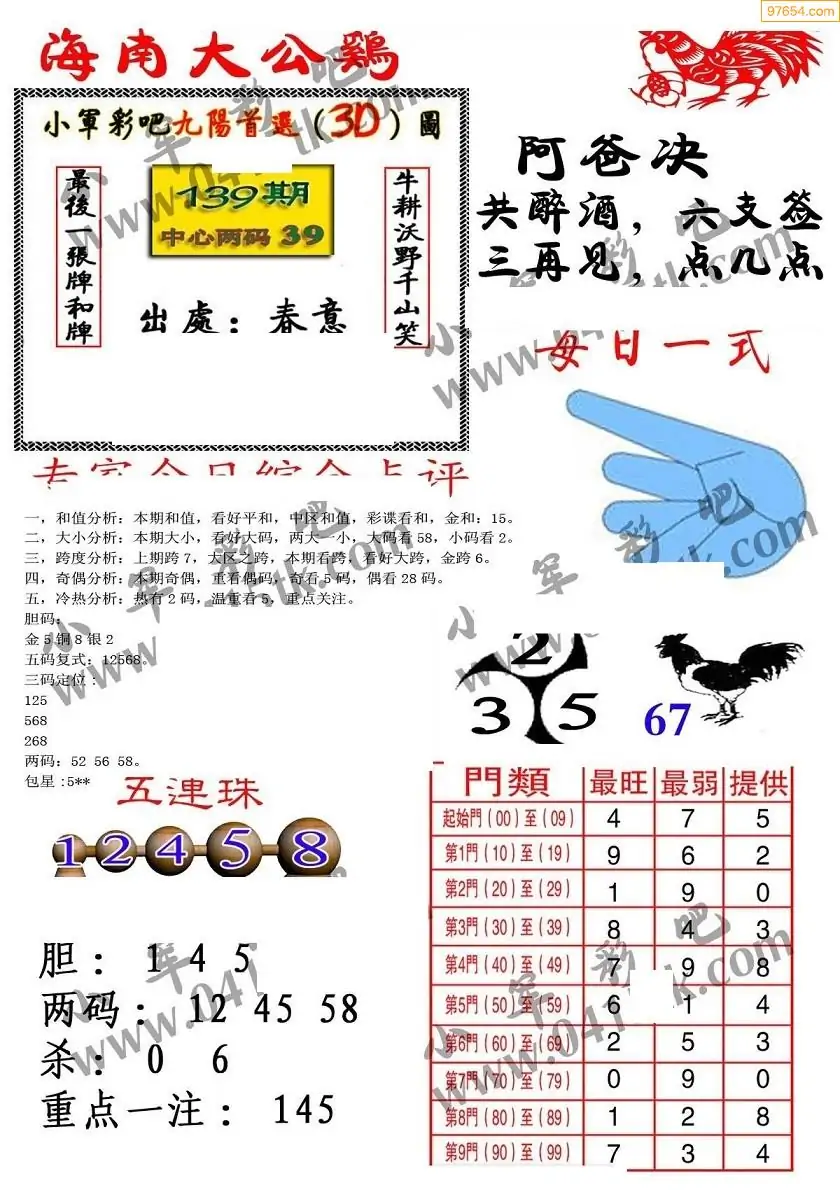 97654.com
海南大公鷄
小軍彩吧九陽首選（3D）圖
最後一張牌和牌
139期
中心两码 39
牛耕沃野千山笑
出處：春意
阿爸决
共醉酒，六支签
三再见，点几点
每日一式
专家今日综合点评
一，和值分析：本期和值，看好平和，中区和值，彩谍看和，金和：15。
二，大小分析：本期大小，看好大码，两大一小，大码看 58，小码看 2。
三，跨度分析：上期跨 7，大区之跨，本期看跨，看好大跨，金跨 6。
四，奇偶分析：本期奇偶，重看偶码，奇看 5 码，偶看 28 码。
五，冷热分析：热有 2 码，温重看 5，重点关注。
胆码：
金 5 铜 8 银 2
五码复式：12568。
三码定位：
125
568
268
两码：52 56 58。
包星:5**
2
3 5
67
五連珠
1 2 4 5 8
胆： 1 4 5
两码： 12 45 58
杀： 0 6
重点一注： 145
門類 最旺 最弱 提供
起始門（00）至（09） 4 7 5
第1門（10）至（19） 9 6 2
第2門（20）至（29） 1 9 0
第3門（30）至（39） 8 4 3
第4門（40）至（49） 7 9 8
第5門（50）至（59） 6 1 4
第6門（60）至（69） 2 5 3
第7門（70）至（79） 0 9 0
第8門（80）至（89） 1 2 8
第9門（90）至（99） 7 3 4